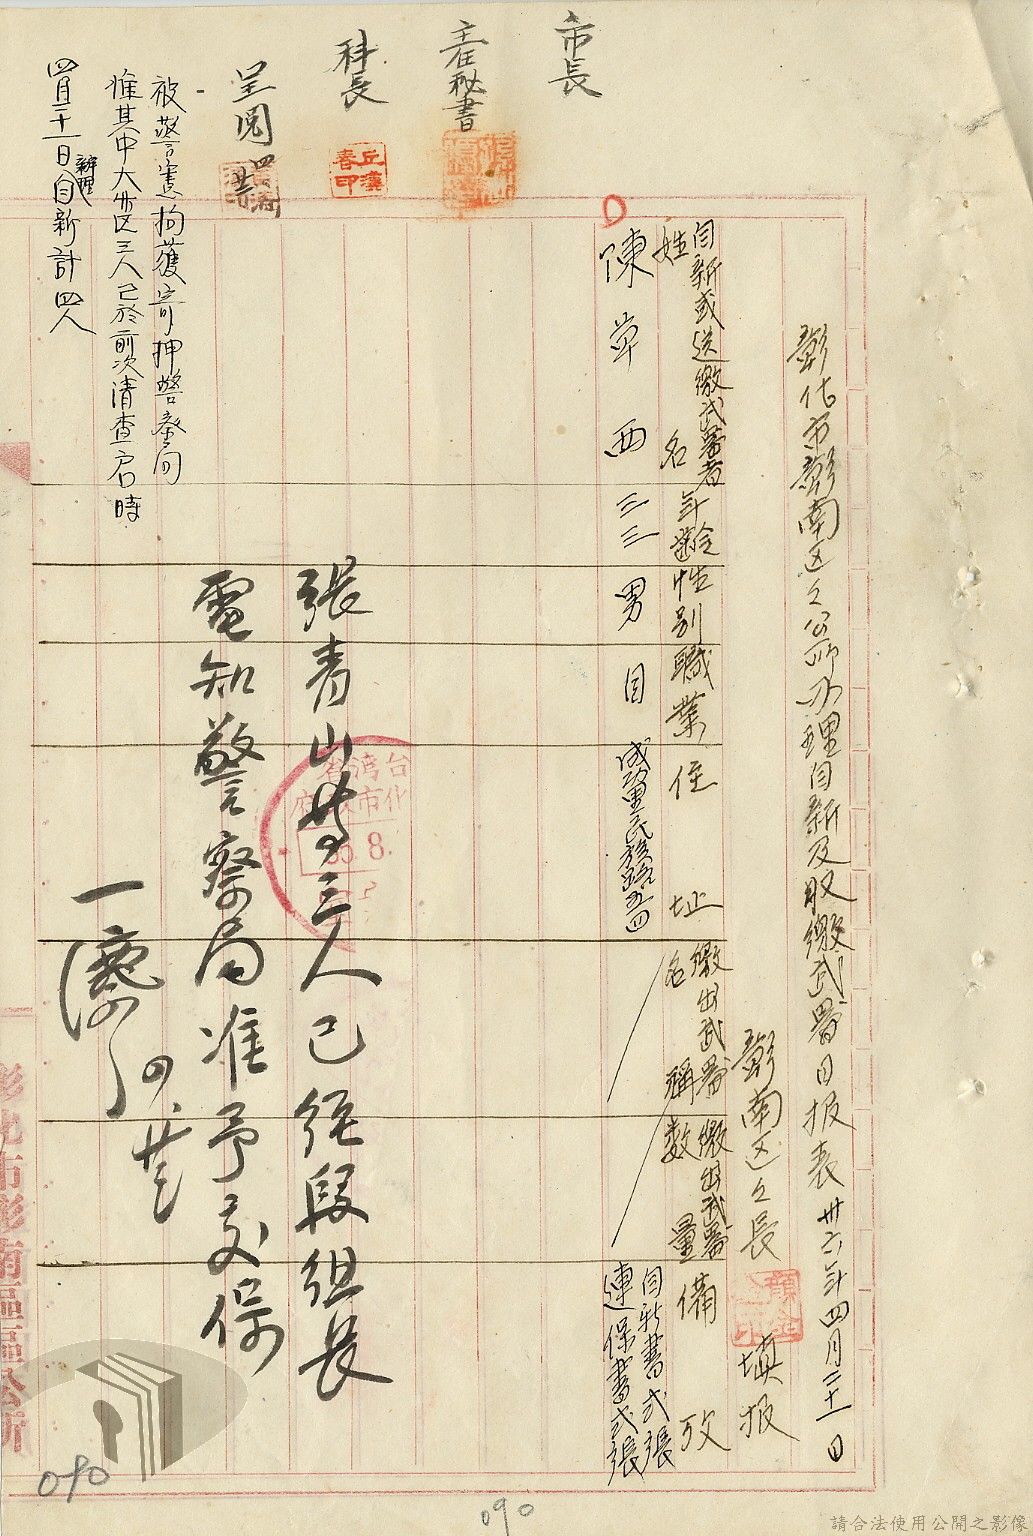 彰化市彰南区区公所办理自新及収繳武器日报表 卅六年四月二十一日
彰南区区長 填报
自新或送繳武器者
姓名
年齡
性别
職業
住址
繳出武器
名稱
繳出武器
数量
備攷
陳草
西
三三
男
自
自新書弍張
連保書弍張
市長
主任秘書
科長
丘漢
春印
呈閱
被警憲拘獲寄押警察局
惟其中大竹区三人已於前次清查户時
辦理
四月二十一日自新計四人
張青山等三人已經段組長
電知警察局准予交保
台湾省
彰化市政府
35.8.
彰化市彰南區區公所
090
090
請合法使用公開之影像